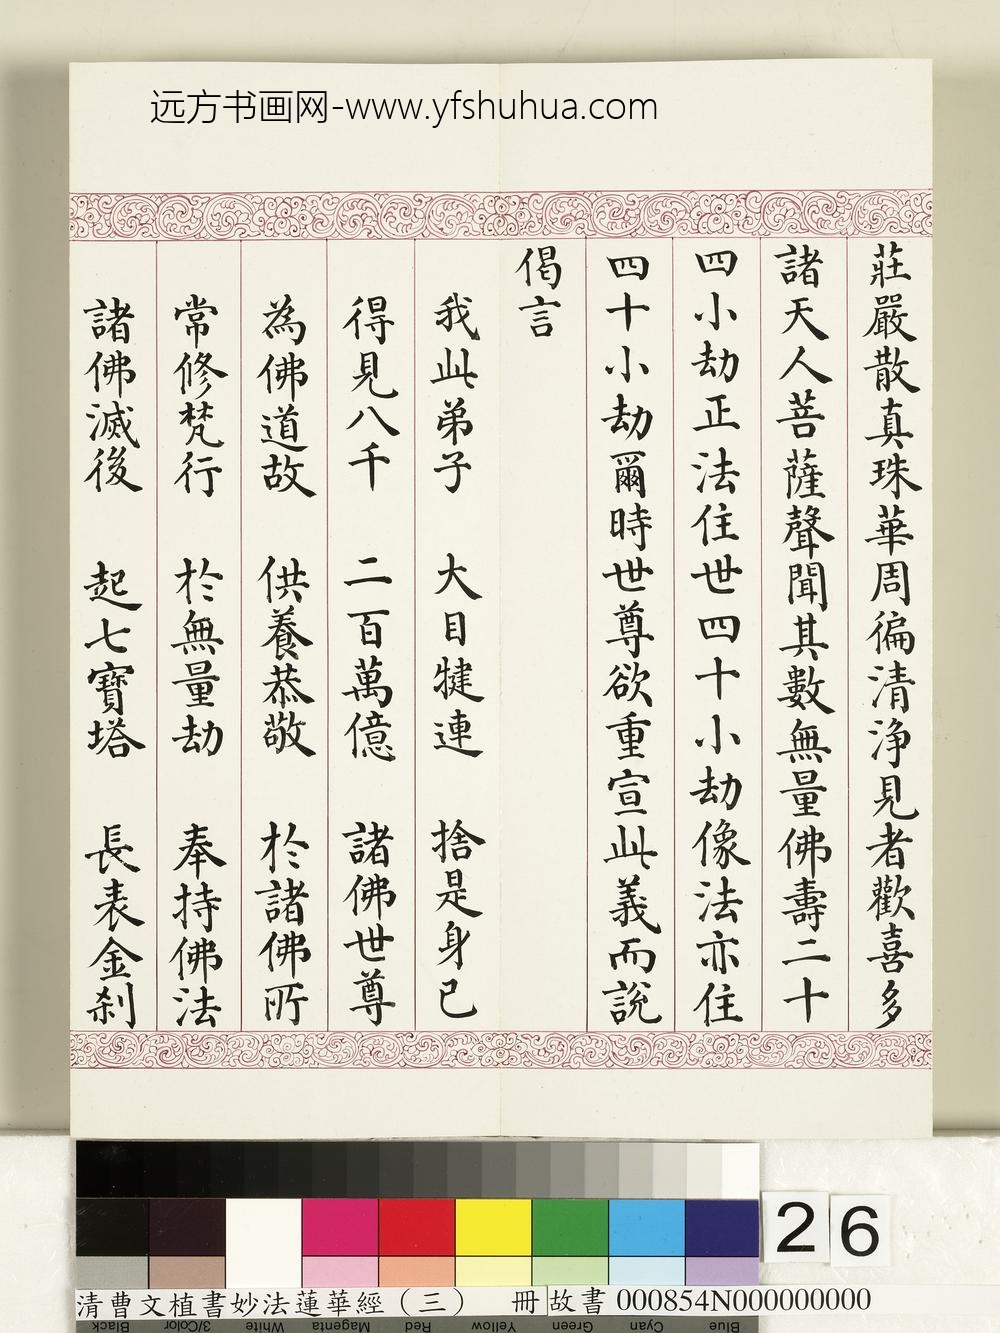 远方书画网-www.yfshuhua.com
莊嚴散真珠華周徧清淨見者歡喜多
諸天人菩薩聲聞其數無量佛壽二十
四小劫正法住世四十小劫像法亦住
四十小劫爾時世尊欲重宣此義而說
偈言
我此弟子 大目犍連 捨是身已
得見八千 二百萬億 諸佛世尊
為佛道故 供養恭敬 於諸佛所
常修梵行 於無量劫 奉持佛法
諸佛滅後 起七寶塔 長表金剎
26
清曹文植書妙法蓮華經(三) 冊 故書 000854N000000000
Black 3/Color White Magenta Red Yellow Green Cyan Blue